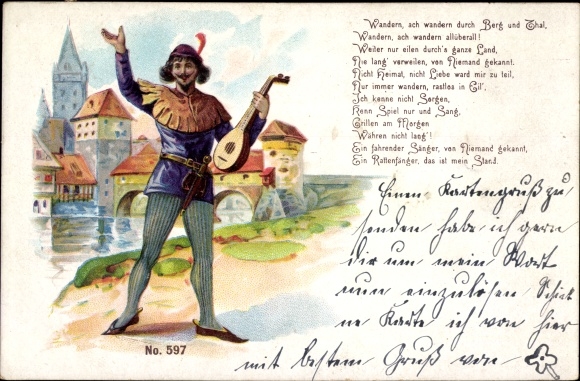 Wandern, ach wandern durch Berg und Thal,
Wandern, ach wandern allüberall!
Weiter nur eilen durch's ganze Land,
Nie lang' verweilen, von Niemand gekannt.
Nicht Heimat, nicht Liebe ward mir zu teil,
Nur immer wandern, rastlos in Eil',
Ich kenne nicht Sorgen,
Kenn Spiel nur und Sang,
Grillen am Morgen
Währen nicht lang'!
Ein fahrender Sänger, von Niemand gekannt,
Ein Rattenfänger, das ist mein Stand.
Einen Kartengruß zu
senden habe ich gern
dir um mein Wort
nun einzulösen Schick
ne Karte ich von hier
mit bestem Gruß von
No. 597